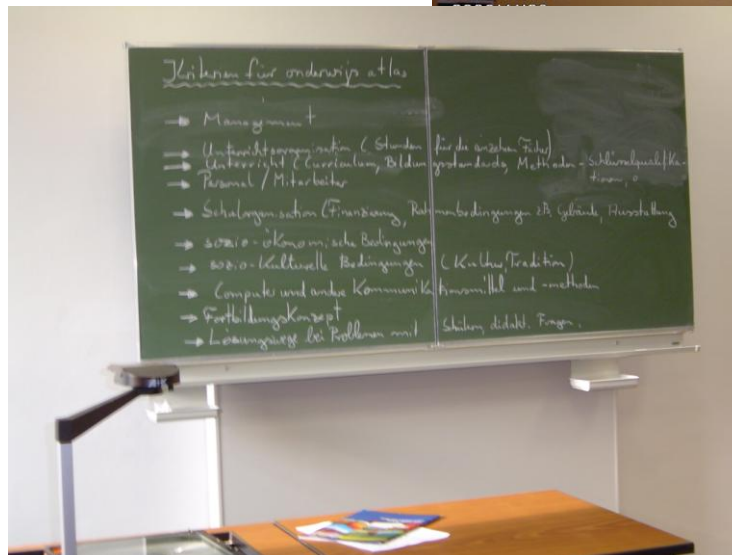 Kriterien für onderwijs atlas
→ Management
→ Unterrichtsorganisation (Stunden für die einzelnen Fächer)
→ Unterricht (Curriculum, Bildungsstandards, Methoden - Schlüsselqualifika-
tionen,
→ Personal / Mitarbeiter
→ Schulorganisation (Finanzierung, Rahmenbedingungen zB, Gebäude, Ausstattung
→ sozio-ökonomische Bedingungen
→ sozio-kulturelle Bedingungen (Kultur, Tradition)
→ Computer und andere Kommunikationsmittel und -methoden
→ Fortbildungskonzept
→ Lösungswege bei Problemen mit Schülern, didakt. Fragen.